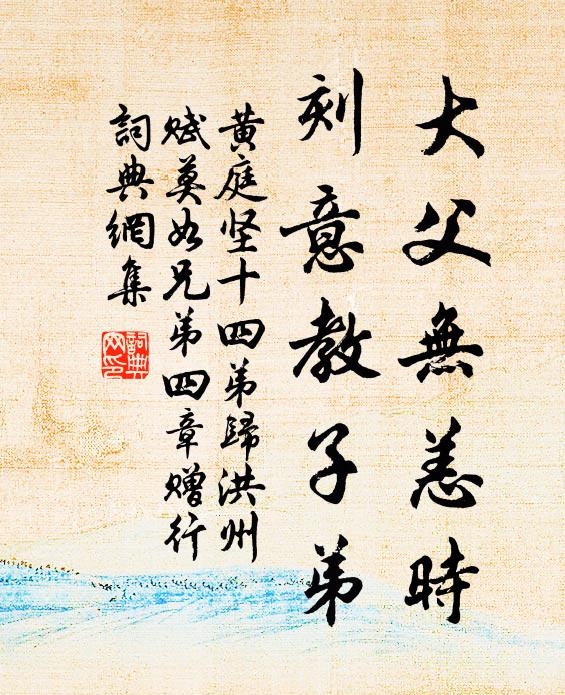 大父無恙時
刻意教子弟
黄庭坚十四弟歸洪州
赋莫如兄弟四章赠行
詞典網集
詞典